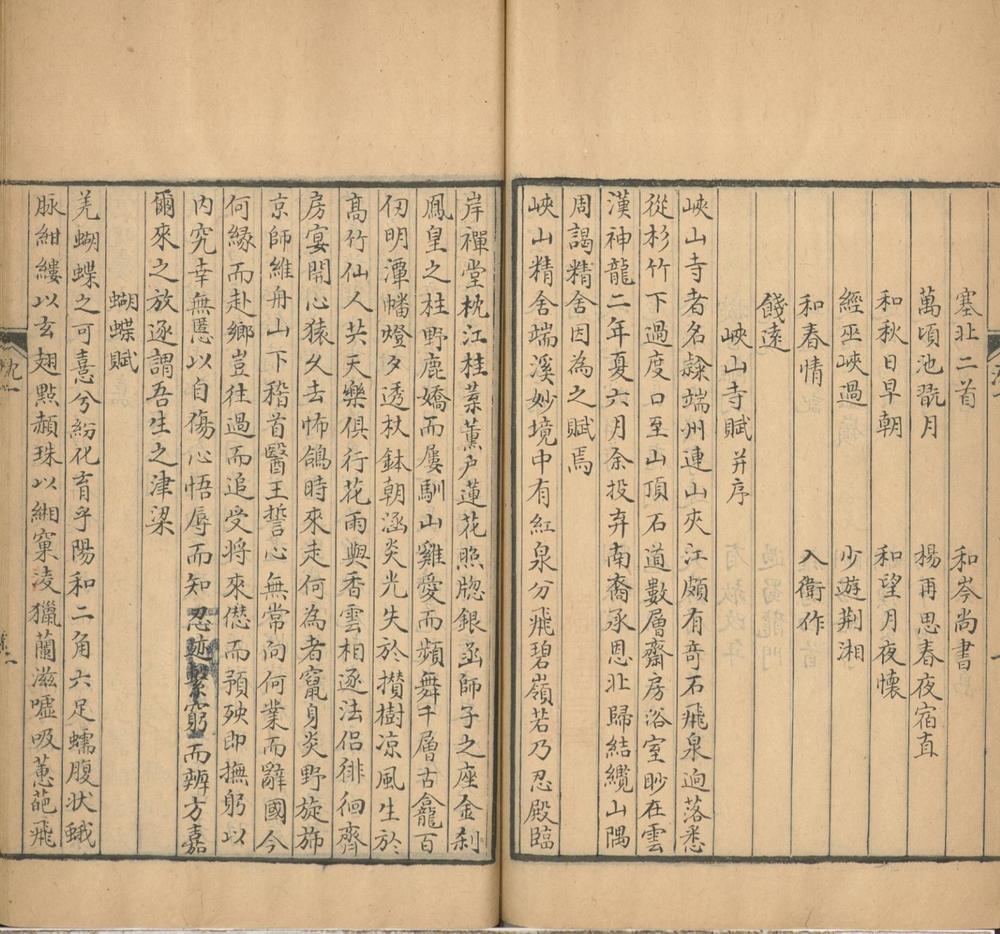 塞北二首　和岑尚書
萬頃池翫月　楊再思春夜宿直
和秋日早朝　和望月夜懷
經巫峽過　少遊荆湘
和春情　入衛作
餞遠
峽山寺賦 并序
峽山寺者名隸端州連山夾江頗有奇石飛泉迥落悉
從杉竹下過度口至山頂石道數層齋房浴室眇在雲
漢神龍二年夏六月余投弃南裔承恩北歸結纜山隅
周謁精舍因為之賦焉
峽山精舍端溪妙境中有紅泉分飛碧嶺若乃忍殿臨
岸禪堂枕江桂葉薰户蓮花照牎銀函師子之座金刹
鳳皇之柱野鹿嬌而屢馴山雞愛而頻舞千層古龕百
仞明潭幡燈夕透杖鉢朝涵炎光失於攅樹凉風生於
髙竹仙人共天樂俱行花雨與香雲相逐法侣徘徊齊
房宴閒心猿久去怖鴿時來走何為者竄身炎野旋斾
京師維舟山下稽首醫王誓心無常向何業而辭國今
何縁而赴鄉豈往過而追受将來僽而預殃即撫躬以
内究幸無慝以自傷心悟辱而知忍迹繫窮而辨方嘉
爾來之放逐謂吾生之津梁
蝴蝶賦
羌蝴蝶之可憙兮紛化育乎陽和二角六足蠕腹状蛾
脉紺縷以玄翅㸃頳珠以緗窠淩獵蘭滋嘘吸蕙葩飛